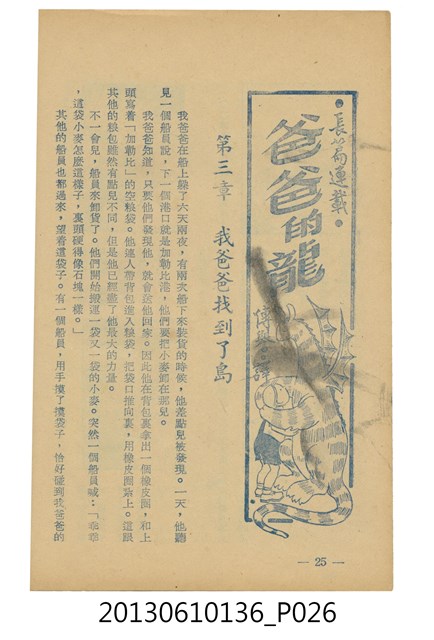 •長篇連載•
爸爸的龍
譯
第三章　我爸爸找到了島
我爸爸在船上躲了六天兩夜，有兩次船下來裝貨的時候，他差點兒被發現。一天，他聽
見一個船員說，下一個港口就是加勒比港，他們要把小麥卸在那兒。
我爸爸知道，只要他們發現他，就會送他回家。因此他在背包裏拿出一個橡皮圈，和上
頭寫着「加勒比」的空粮袋。他連人帶背包進入粮袋，把袋口推向裏，用橡皮圈紮上。這跟
其他的粮包雖然有點兒不同，但是他已經盡了他最大的力量。
不一會兒，船員來卸貨了。他們開始搬運一袋又一袋的小麥。突然一個船員喊：「乖乖
，這袋小麥怎麼這樣子，裏頭硬得像石塊一樣。」
其他的船員也都過來，望着這袋子。有一個船員，用手摸了摸袋子，恰好碰到我爸爸的
— 25 —
20130610136_P026